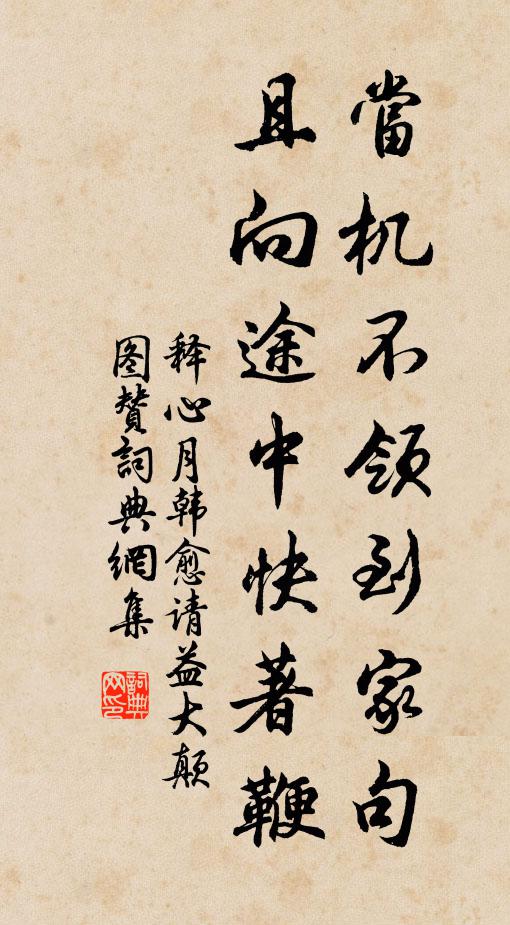 當机不领到家句
且向途中快著鞭
释心月韩愈请益大颠
图赞詞典網集
詞典
网印